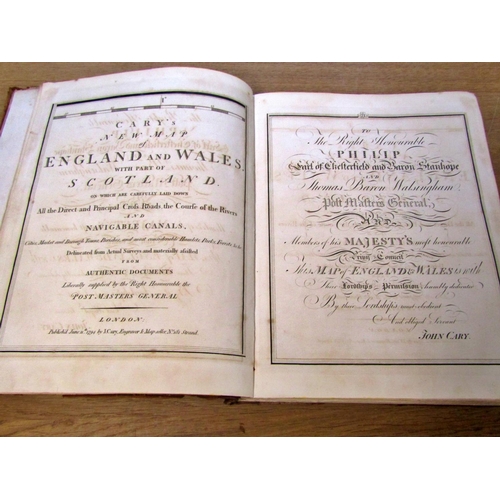 CARY'S
NEW MAP
OF
ENGLAND AND WALES,
WITH PART OF
SCOTLAND.
ON WHICH ARE CAREFULLY LAID DOWN
All the Direct and Principal Cross Roads, the Course of the Rivers
AND
NAVIGABLE CANALS,
Cities, Market and Borough Towns, Parishes, and most considerable Hamlets, Parks, Forests, &c.
Delineated from Actual Surveys and materially assisted
FROM
AUTHENTIC DOCUMENTS
Liberally supplied by the Right Honourable the
POST MASTERS GENERAL
LONDON
Published June 11th 1794 by J. Cary, Engraver & Map-seller, No. 181 Strand.
TO
The Right Honourable
PHILIP
Earl of Chesterfield and Baron Stanhope
AND
Thomas Baron Walsingham
Post Masters General,
AND
Members of his MAJESTY'S most honourable
Privy Council
This MAP of ENGLAND & WALES is with
Their Lordship's Permission humbly dedicated
By their Lordships most obedient
And obliged Servant
JOHN CARY